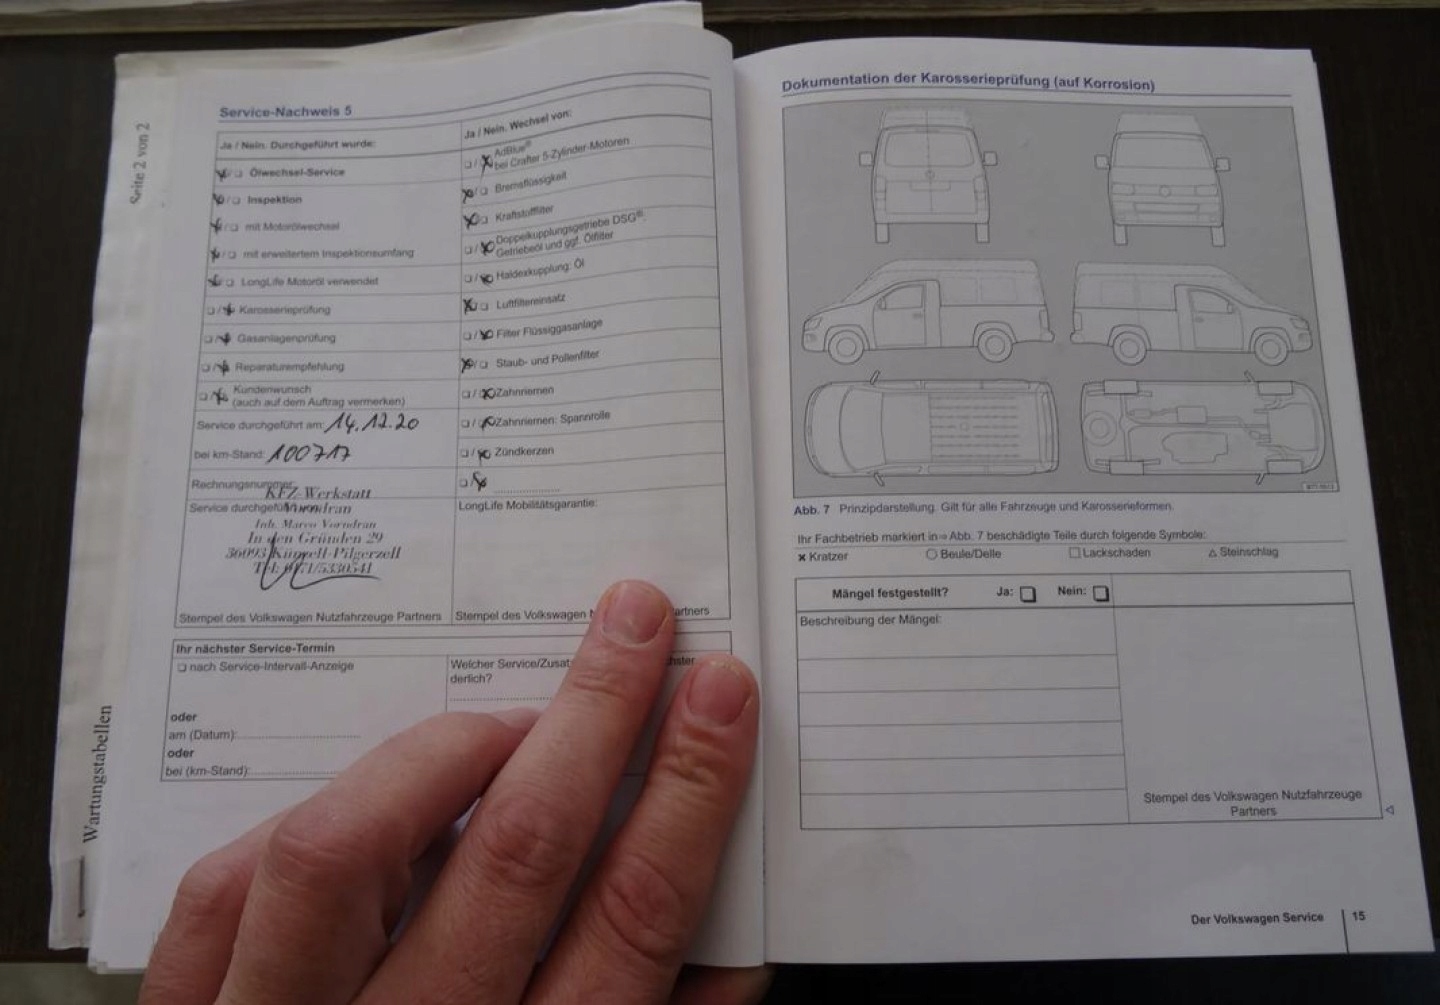 Seite 2 von 2
Wartungstabellen
Service-Nachweis 5
Ja / Nein. Durchgeführt wurde:
☒/☐ Ölwechsel-Service
☒/☐ Inspektion
☒/☐ mit Motorölwechsel
☒/☐ mit erweitertem Inspektionsumfang
☒/☐ LongLife Motoröl verwendet
☐/☒ Karosserieprüfung
☐/☒ Gasanlagenprüfung
☐/☒ Reparaturempfehlung
☐/☒ Kundenwunsch
(auch auf dem Auftrag vermerken)
Service durchgeführt am: 14.12.20
bei km-Stand: 100717
Rechnungsnummer:
Service durchgeführt von:
KFZ-Werkstatt
Vorndran
Inh. Marco Vorndran
In den Gründen 29
36093 Künzell-Pilgerzell
Tel: 0171/5330541
Stempel des Volkswagen Nutzfahrzeuge Partners
Ja / Nein. Wechsel von:
☐/☒ AdBlue®
bei Crafter 5-Zylinder-Motoren
☒/☐ Bremsflüssigkeit
☒/☐ Kraftstofffilter
☐/☒ Doppelkupplungsgetriebe DSG®:
Getriebeöl und ggf. Ölfilter
☐/☒ Haldexkupplung: Öl
☒/☐ Luftfiltereinsatz
☐/☒ Filter Flüssiggasanlage
☒/☐ Staub- und Pollenfilter
☐/☒ Zahnriemen
☐/☒ Zahnriemen: Spannrolle
☐/☒ Zündkerzen
☐/☒
LongLife Mobilitätsgarantie:
Stempel des Volkswagen N artners
Ihr nächster Service-Termin
☐ nach Service-Intervall-Anzeige
oder
am (Datum):
oder
bei (km-Stand):
Welcher Service/Zusat hster
derlich?
Dokumentation der Karosserieprüfung (auf Korrosion)
Abb. 7 Prinzipdarstellung. Gilt für alle Fahrzeuge und Karosserieformen.
Ihr Fachbetrieb markiert in ⇒ Abb. 7 beschädigte Teile durch folgende Symbole:
✖ Kratzer ○ Beule/Delle □ Lackschaden △ Steinschlag
Mängel festgestellt? Ja: ☐ Nein: ☐
Beschreibung der Mängel:
Stempel des Volkswagen Nutzfahrzeuge
Partners
Der Volkswagen Service 15